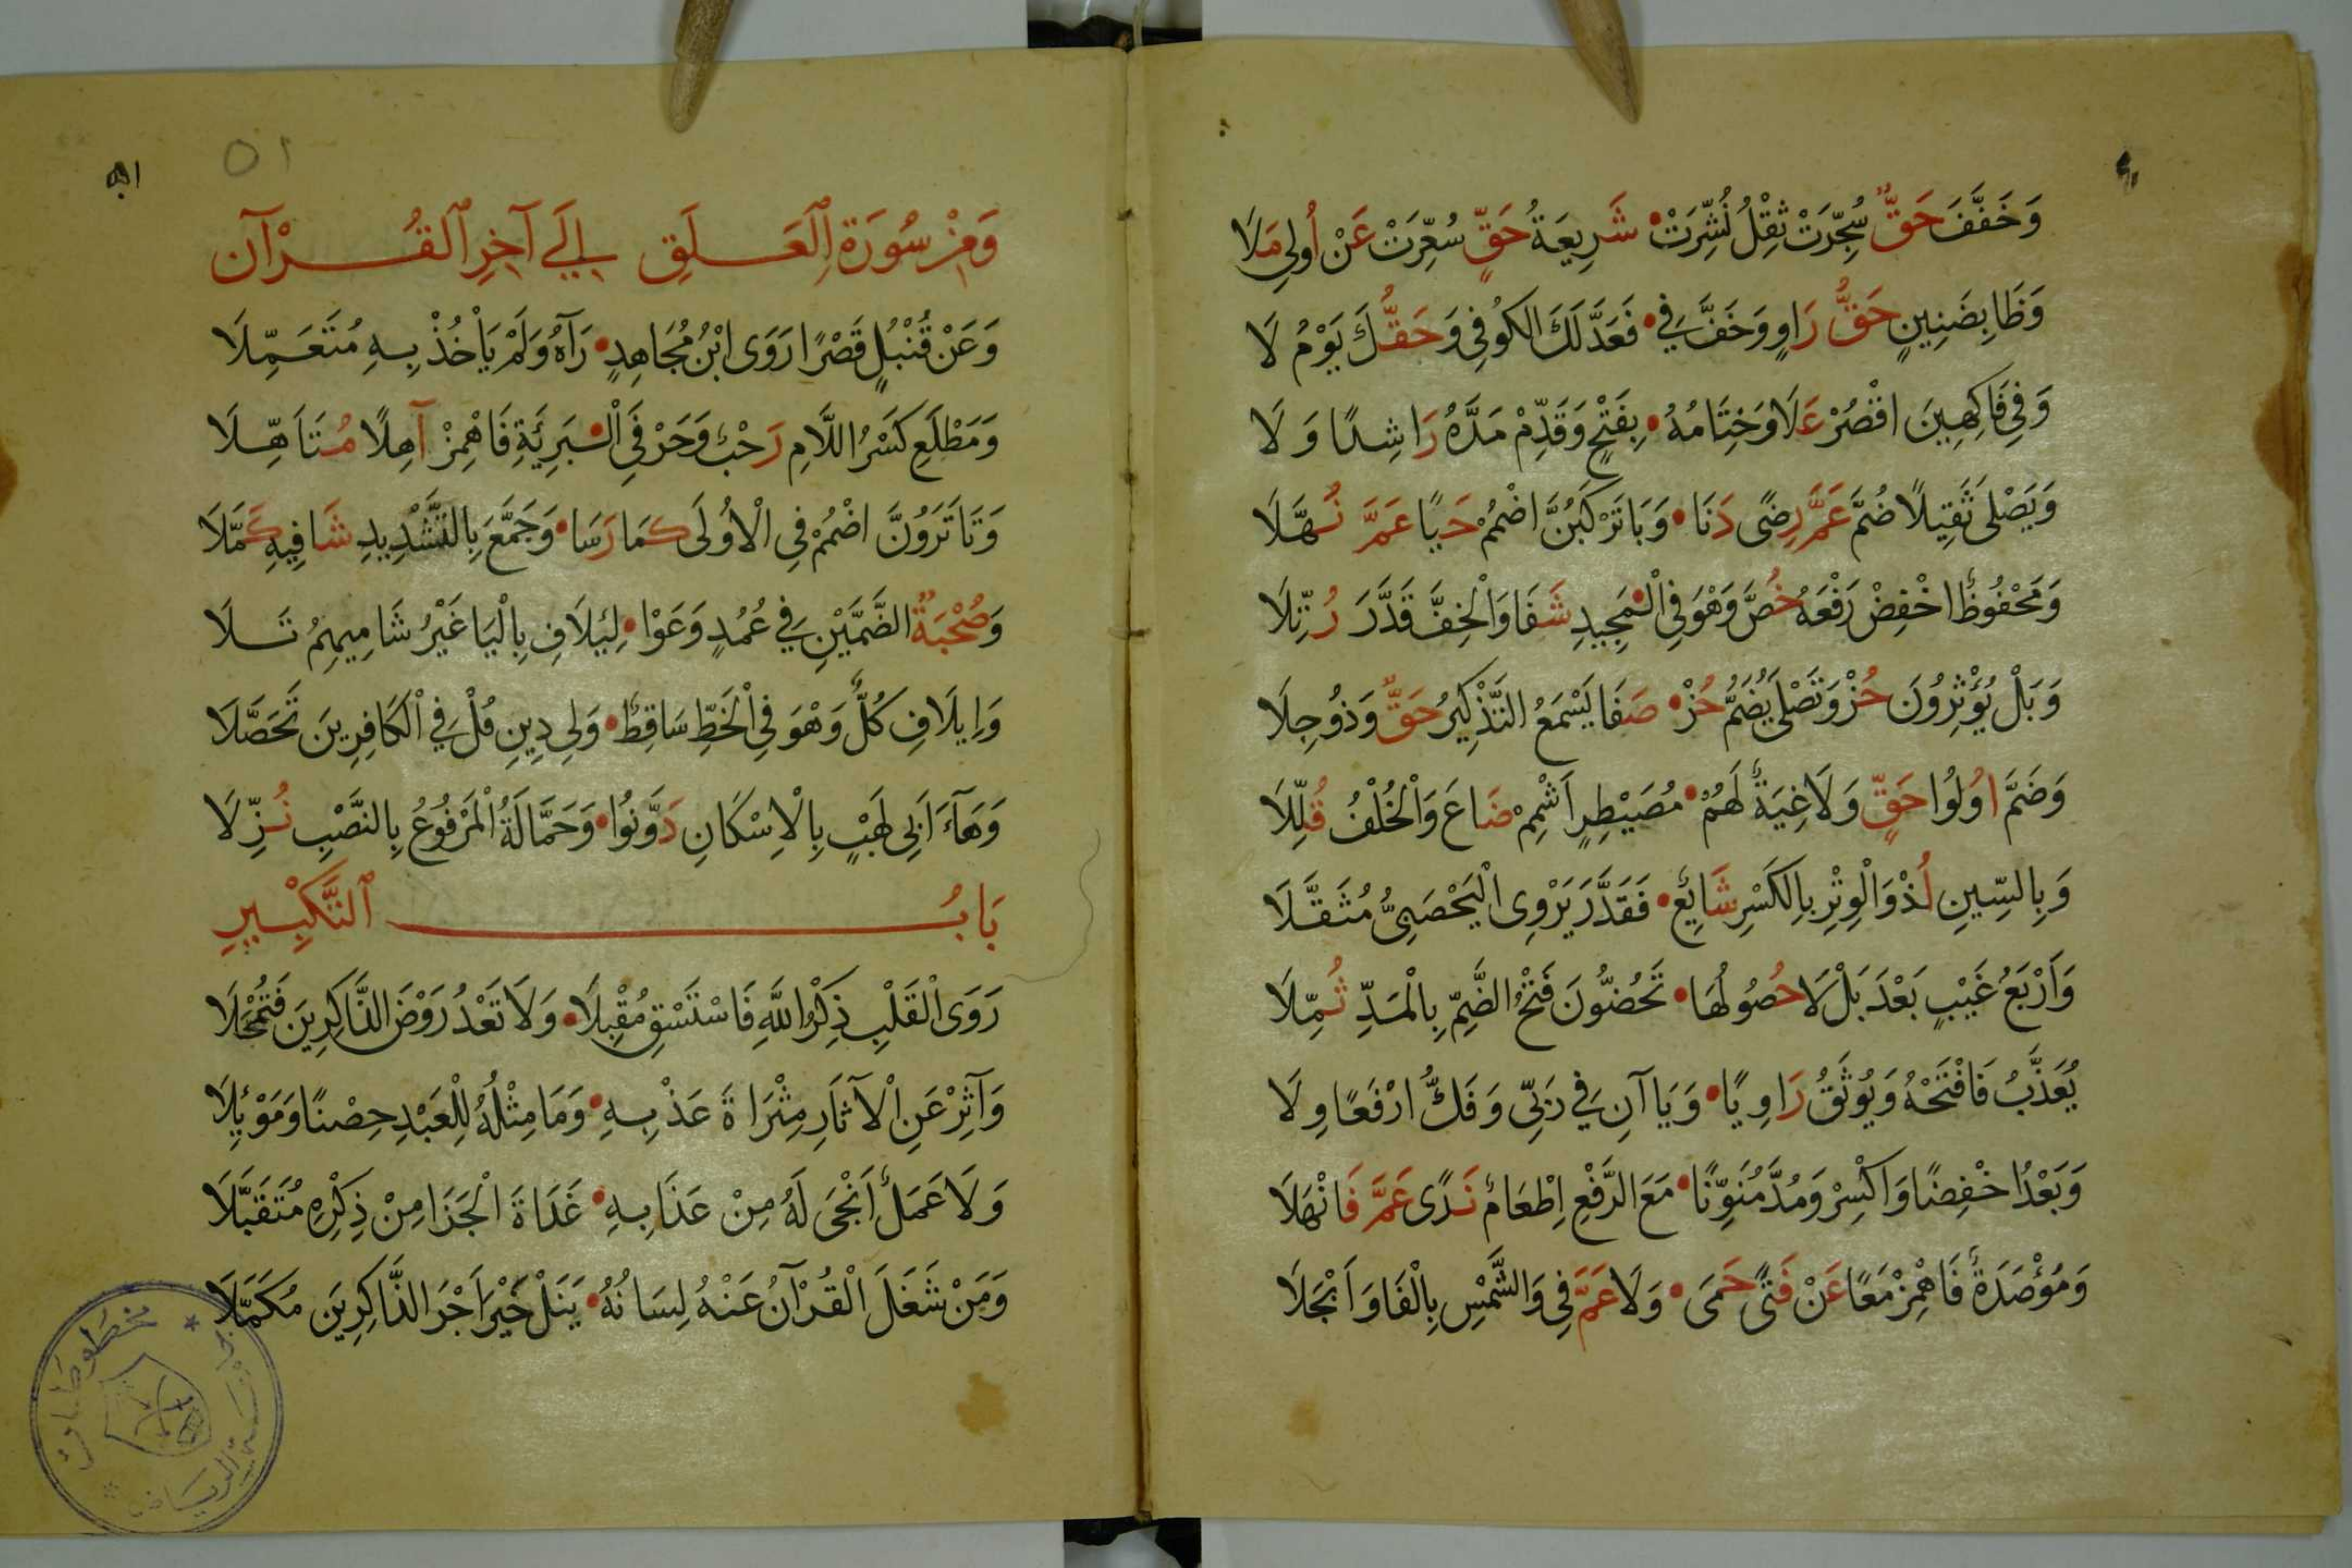 وَخَفَّفَ حَقٌّ سُجِّرَتْ ثِقْلُ نُشِّرَتْ • شَرِيعَةُ حَقٍّ سُعِّرَتْ عَنْ أُولِي مَلَا
وَظَا بِضَنِينٍ حَقُّ رَاوٍ وَخَفَّ فِي • فَعَدَّلَكَ الكُوفِي وَحَقُّكَ يَوْمُ لَا
وَفِي فَاكِهِينَ اقْصُرْ عَلَا وَخِتَامُهُ • بِفَتْحٍ وَقَدِّمْ مَدَّهُ رَاشِدًا وَلَا
وَيَصْلَى ثَقِيلًا ضُمَّ عَمَّ رِضًى دَنَا • وَبَا تَرْكَبُنَّ اضْمُمْ حَيًا عَمَّ نُهَّلَا
وَمَحْفُوظٌ اخْفِضْ رَفْعَهُ خُصَّ وَهْوَ فِي الْمَجِيدِ شَفَا وَالْخِفُّ قَدَّرَ رُتِّلَا
وَبَلْ يُؤْثِرُونَ حُزْ وَتَصْلَى يُضَمُّ حُزْ • صَفَا يَسْمَعُ التَّذْكِيرُ حَقٌّ وَذُو جِلَا
وَضَمَّ اُولُوا حَقٍّ وَلَاغِيَةٌ لَهُمْ • مُصَيْطِرٍ اَشْمِمْ ضَاعَ وَالْخُلْفُ قُلِّلَا
وَبِالسِّينِ لُذْ وَالْوِتْرِ بِالكَسْرِ شَايِعٌ • فَقَدَّرَ يَرْوِى الْيَحْصَبِىُّ مُثَقَّلَا
وَاَرْبَعُ غَيْبٍ بَعْدَ بَلْ لَا حُصُولُهَا • تَحُضُّونَ فَتْحُ الضَّمِّ بِالْمَدِّ ثُمِّلَا
يُعَذَّبُ فَافْتَحْهُ وَيُوثَقُ رَاوِيًا • وَيَاآنِ فِي رَبِّى وَفَكُّ ارْفَعًا وِلَا
وَبَعْدُ اخْفِضًا وَاكْسِرْ وَمُدَّ مُنَوِّنًا • مَعَ الرَّفْعِ اِطْعَامٌ نَدًى عَمَّ فَانْهَلَا
وَمُؤْصَدَةٌ فَاهْمِزْ مَعًا عَنْ فَتًى حَمَى • وَلَا عَمَّ فِي وَالشَّمْسِ بِالْفَا وَاَنْجَلَا
٥١
وَمِنْ سُورَةِ ٱلْعَلَقِ إِلَي آخِرِ ٱلْقُرْآنِ
وَعَنْ قُنْبُلٍ قَصْرًا رَوَى ابْنُ مُجَاهِدٍ • رَآهُ وَلَمْ يَاْخُذْ بِهِ مُتَعَمِّلَا
وَمَطْلَعِ كَسْرُ اللَّامِ رَحْبٌ وَحَرْفَيِ الْبَرِيَّةِ فَاهْمِزْ آهِلًا مُتَاَهِّلَا
وَتَا تَرَوُنَّ اضْمُمْ فِي الْاُولَى كَمَا رَسَا • وَجَمَّعَ بِالتَّشْدِيدِ شَافِيهِ كَمَّلَا
وَصُحْبَةٌ الضَّمَّيْنِ فِي عُمُدٍ وَعَوْا • لِئِلَافِ بِالْيَا غَيْرُ شَامِيهِمُ تَلَا
وَاِيلَافِ كُلٌّ وَهْوَ فِي الْخَطِّ سَاقِطٌ • وَلِي دِينِ قُلْ فِي الْكَافِرِينَ تَحَصَّلَا
وَهَآءَ اَبِي لَهْبٍ بِالْاِسْكَانِ دَوَّنُوا • وَحَمَّالَةُ الْمَرْفُوعُ بِالنَّصْبِ نُزِّلَا
بَابُ ٱلتَّكْبِيرِ
رَوَى الْقَلْبِ ذِكْرُ اللَّهِ فَاسْتَسْقِ مُقْبِلًا • وَلَا تَعْدُ رَوْضَ الذَّاكِرِينَ فَتُمْحِلَا
وَآثِرْ عَنِ الْآثَارِ مِثْرَاةَ عَذْبِهِ • وَمَا مِثْلُهُ لِلْعَبْدِ حِصْنًا وَمَوْئِلَا
وَلَا عَمَلٌ اَنْجَى لَهُ مِنْ عَذَابِهِ • غَدَاةَ الْجَزَا مِنْ ذِكْرِهِ مُتَقَبَّلَا
وَمَنْ شَغَلَ الْقُرْآنُ عَنْهُ لِسَانُهُ • يَنَلْ خَيْرَ اَجْرِ الذَّاكِرِينَ مُكَمَّلَا
مخطوطات
الرياض